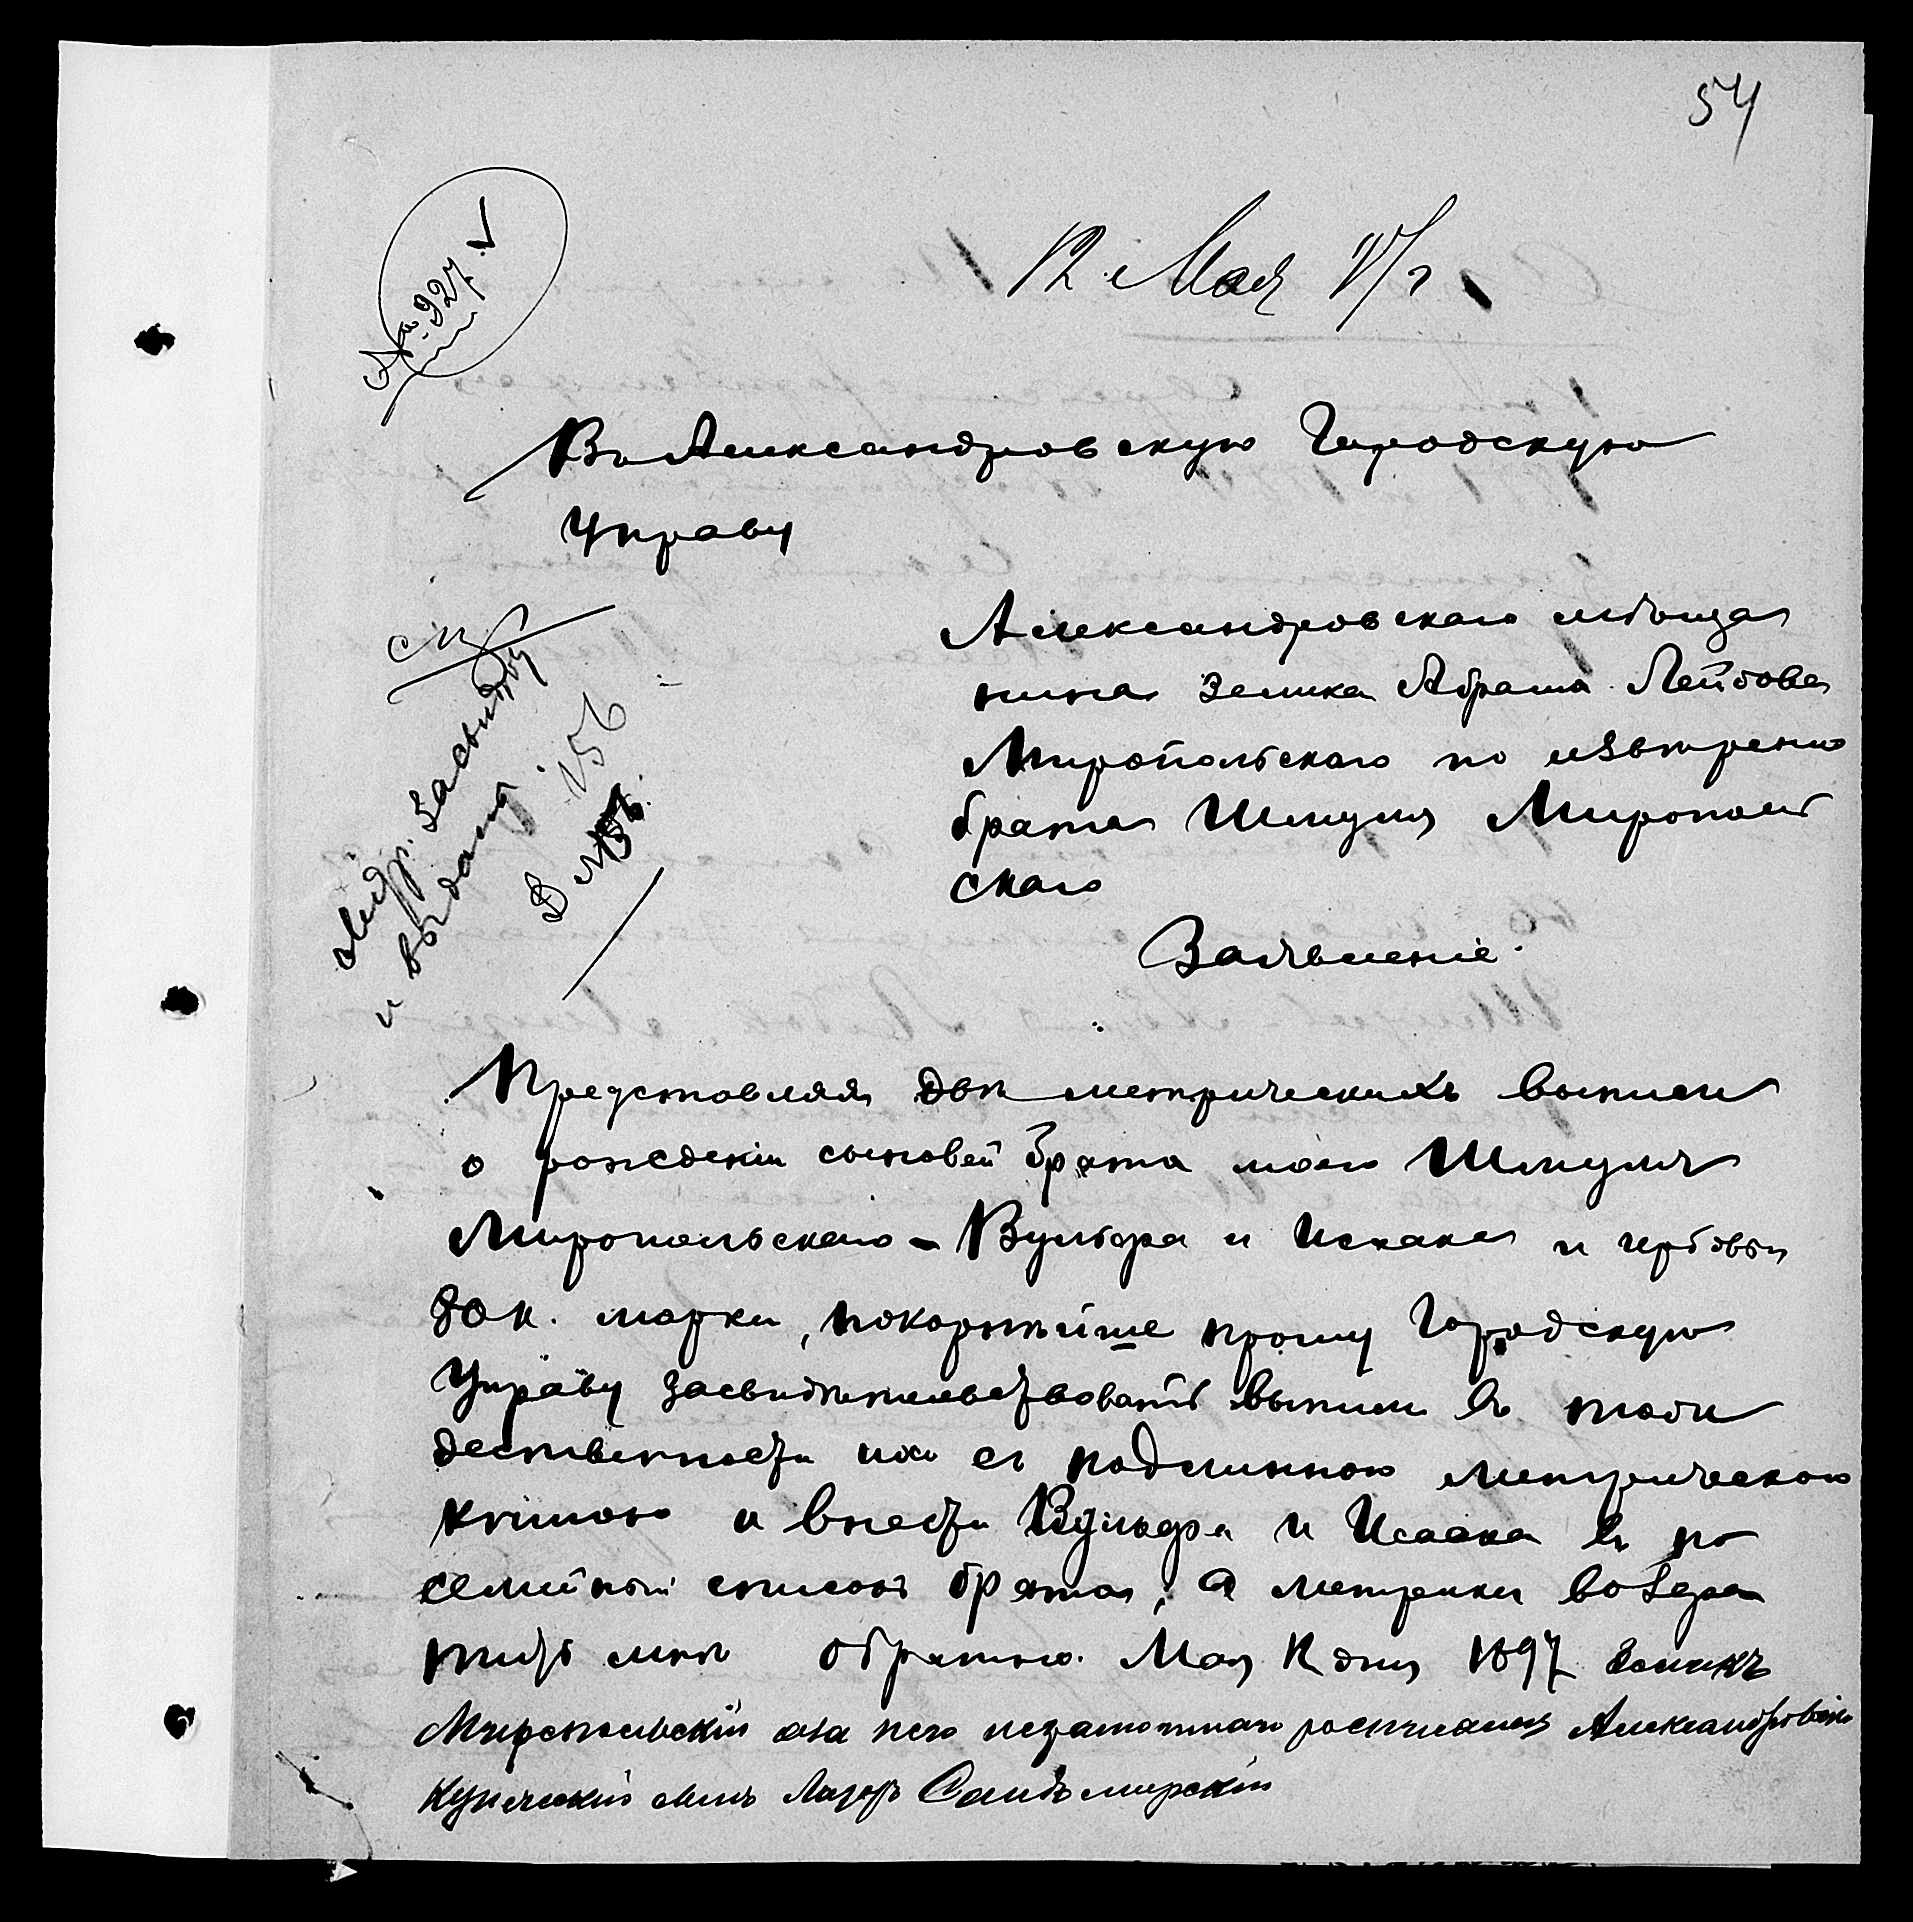 54
12 Мая 97 г
№ 927
Въ Александровскую Городскую
Управу
Александровскаго мѣща
нина Зелика Абрама Лейбова
Миропольскаго по довѣрению
брата Шмуля Мирополь
скаго
Заявленіе.
и выдать
Представляя двѣ метрическихъ выписи
о рожденіи сыновей брата моего Шмуля
Миропольскаго - Вульфа и Исаака и гербовыя
80 к. марки, покорнѣйше прошу Городскую
Управу засвидѣтельствовать выписи въ тож
дественности ихъ съ подлинною метрическою
книгою и внести Вульфа и Исаака въ по
семейный списокъ брата, а метрики возвра
тить мнѣ обратно. Мая 12 дня 1897 Зеликъ
Миропольскій а за него неграмотнаго росписался Александровскій
купеческій сынъ Лазарь Сандомирскій